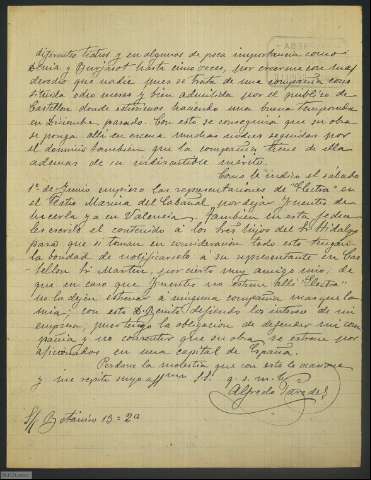 diferentes teatros y en algunos de poca importancia como
Denia y Burjasot hasta cinco veces, por creerme con mas
derecho que nadie pues se trata de una compañia cons
tituida ocho meses y bien admitida por el publico de
Castellon donde estuvimos haciendo una buena temporada
en Diciembre pasado. Con esto se conseguiria que su obra
se ponga alli en escena muchas noches seguidas por
el dominio tambien que la compañia tiene de ella
ademas de su indiscutible mérito.
Como le indico el sábado
1º de Junio empiezo las representaciones de "Electra" en
el Teatro Marina del Cabañal, por dejar Fuentes de
hacerla ya en Valencia. Tambien en esta fecha
les escribo el contenido á los tres hijos del Sr Hidalgo
para que si toman en consideracion todo esto tengan
la bondad de notificarselo a su representante en Cas
tellon Sr Martin, por cierto muy amigo mio, de
que en caso que Fuentes no estrene alli "Electra"
no la dejen estrenar a ninguna compañia mas que la
mia; con esto D. Benito defiendo los intereses de mi
empresa, pues tengo la obligacion de defender mi com
pañia y no consentir que su obra se estrene por
aficionados en una capital de España.
Perdone la molestia que con esto le ocasiona
y me repito suyo affmo SS. q. s. m. b.
Alfredo Paredes
S/c Botánico 13 = 2º